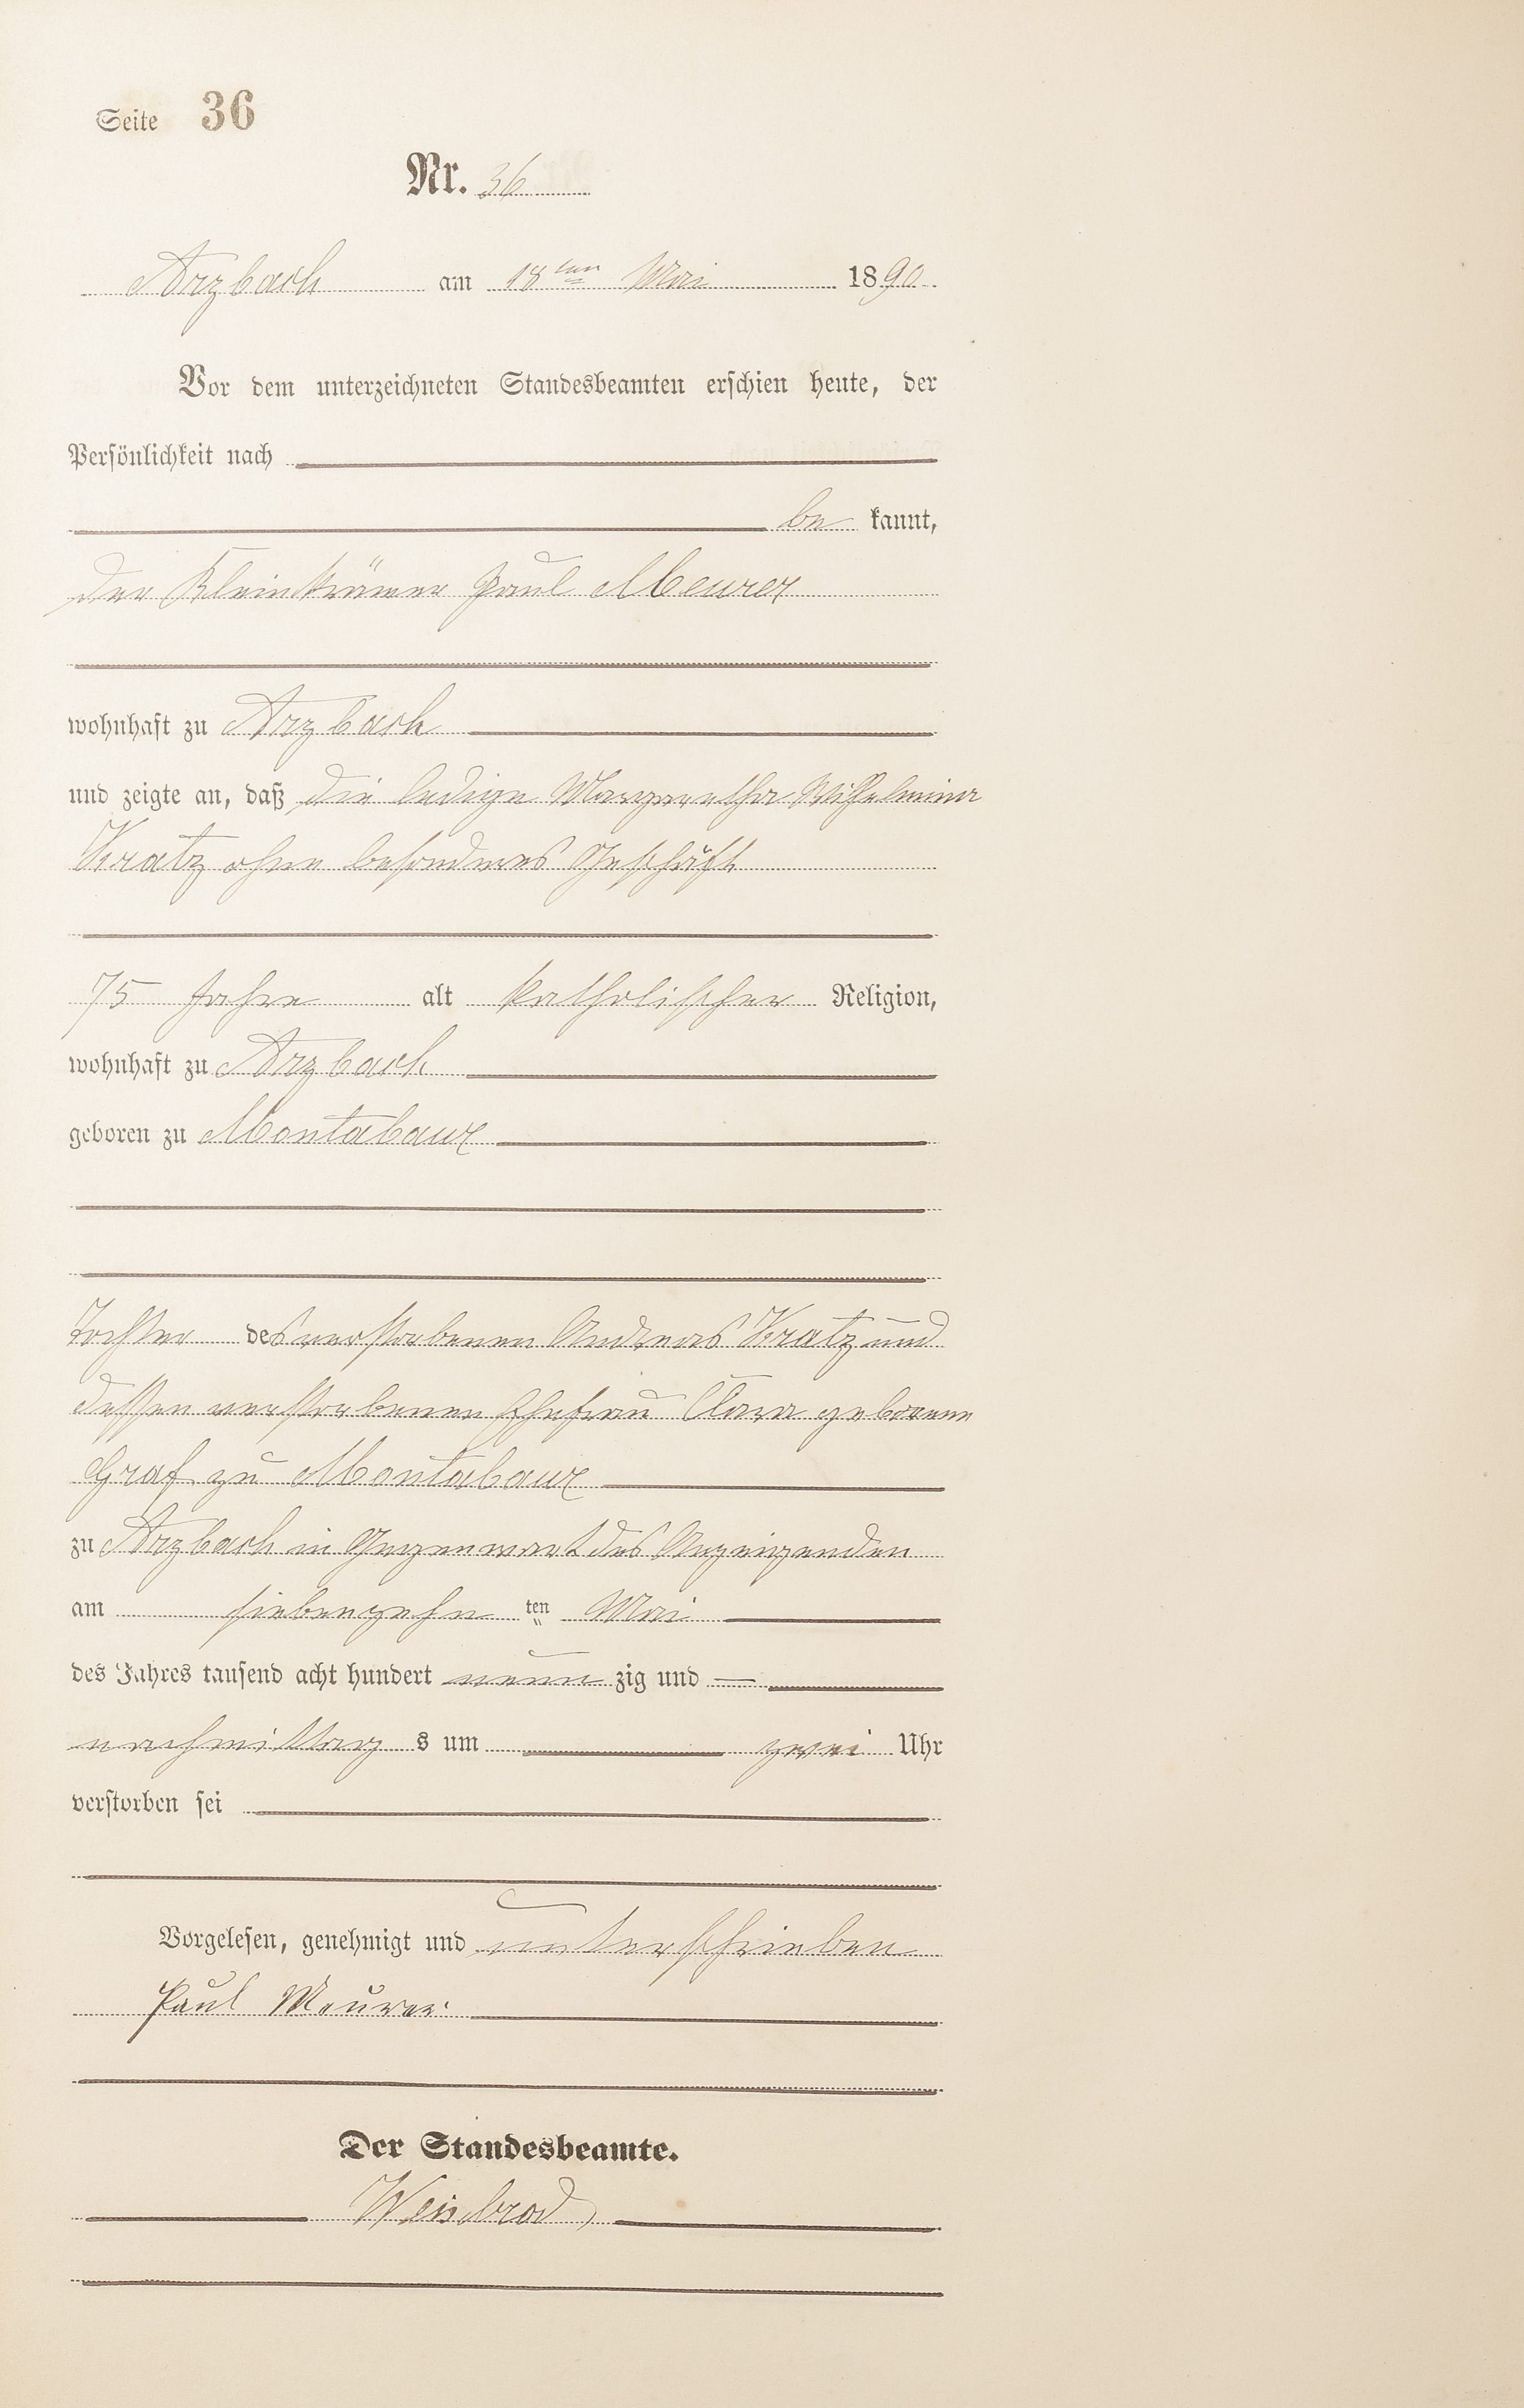 Seite 36
Nr. 36
Arzbach am 18ten Mai 1890
Vor dem unterzeichneten Standesbeamten erschien heute, der
Persönlichkeit nach
be kannt,
der Kleinkrämer Paul Meurer
wohnhaft zu Arzbach
und zeigte an, daß die ledige Margaretha Wilhelmina
Kratz ohne besonderes Geschäft
75 Jahre alt katholischer Religion,
wohnhaft zu Arzbach
geboren zu Montabaur
Tochter des verstorbenen Andreas Kratz und
dessen verstorbenen Ehefrau Clara geborene
Graf zu Montabaur
zu Arzbach in Gegenwart des Anzeigenden
am siebenzehn ten Mai
des Jahres tausend acht hundert neun zig und —
nachmittag s um zwei Uhr
verstorben sei
Vorgelesen, genehmigt und unterschrieben
Paul Meurer
Der Standesbeamte.
Weisbrod